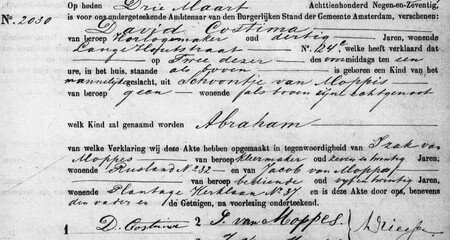 Op heden Drie Maart Achttienhonderd Negen-en-Zeventig,
No. 2030 is voor ons ondergeteekende Ambtenaar van den Burgerlijken Stand der Gemeente Amsterdam, verschenen:
David Costima,
van beroep Horlogemaker oud dertig Jaren, wonende
Lange Houtstraat No. 124c, welke heeft verklaard dat
op Twee dezer des voormiddags ten een
ure, in het huis, staande als boven is geboren een Kind van het
mannelijk geslacht, uit Schoontje van Moppes
van beroep geen wonende als boven zijne echtgenoot
welk Kind zal genaamd worden Abraham
van welke Verklaring wij deze Akte hebben opgemaakt in tegenwoordigheid van Izak van
Moppes van beroep Kleermaker oud zeven en twintig Jaren,
wonende Rusland No. 32 en van Jacob van Moppes
van beroep bediende oud vijf en twintig Jaren,
wonende Plantage Kerklaan No. 37 en is deze Akte door ons, benevens
den vader en de Getuigen, na voorlezing onderteekend.
1 D. Costima 2 I. van Moppes.